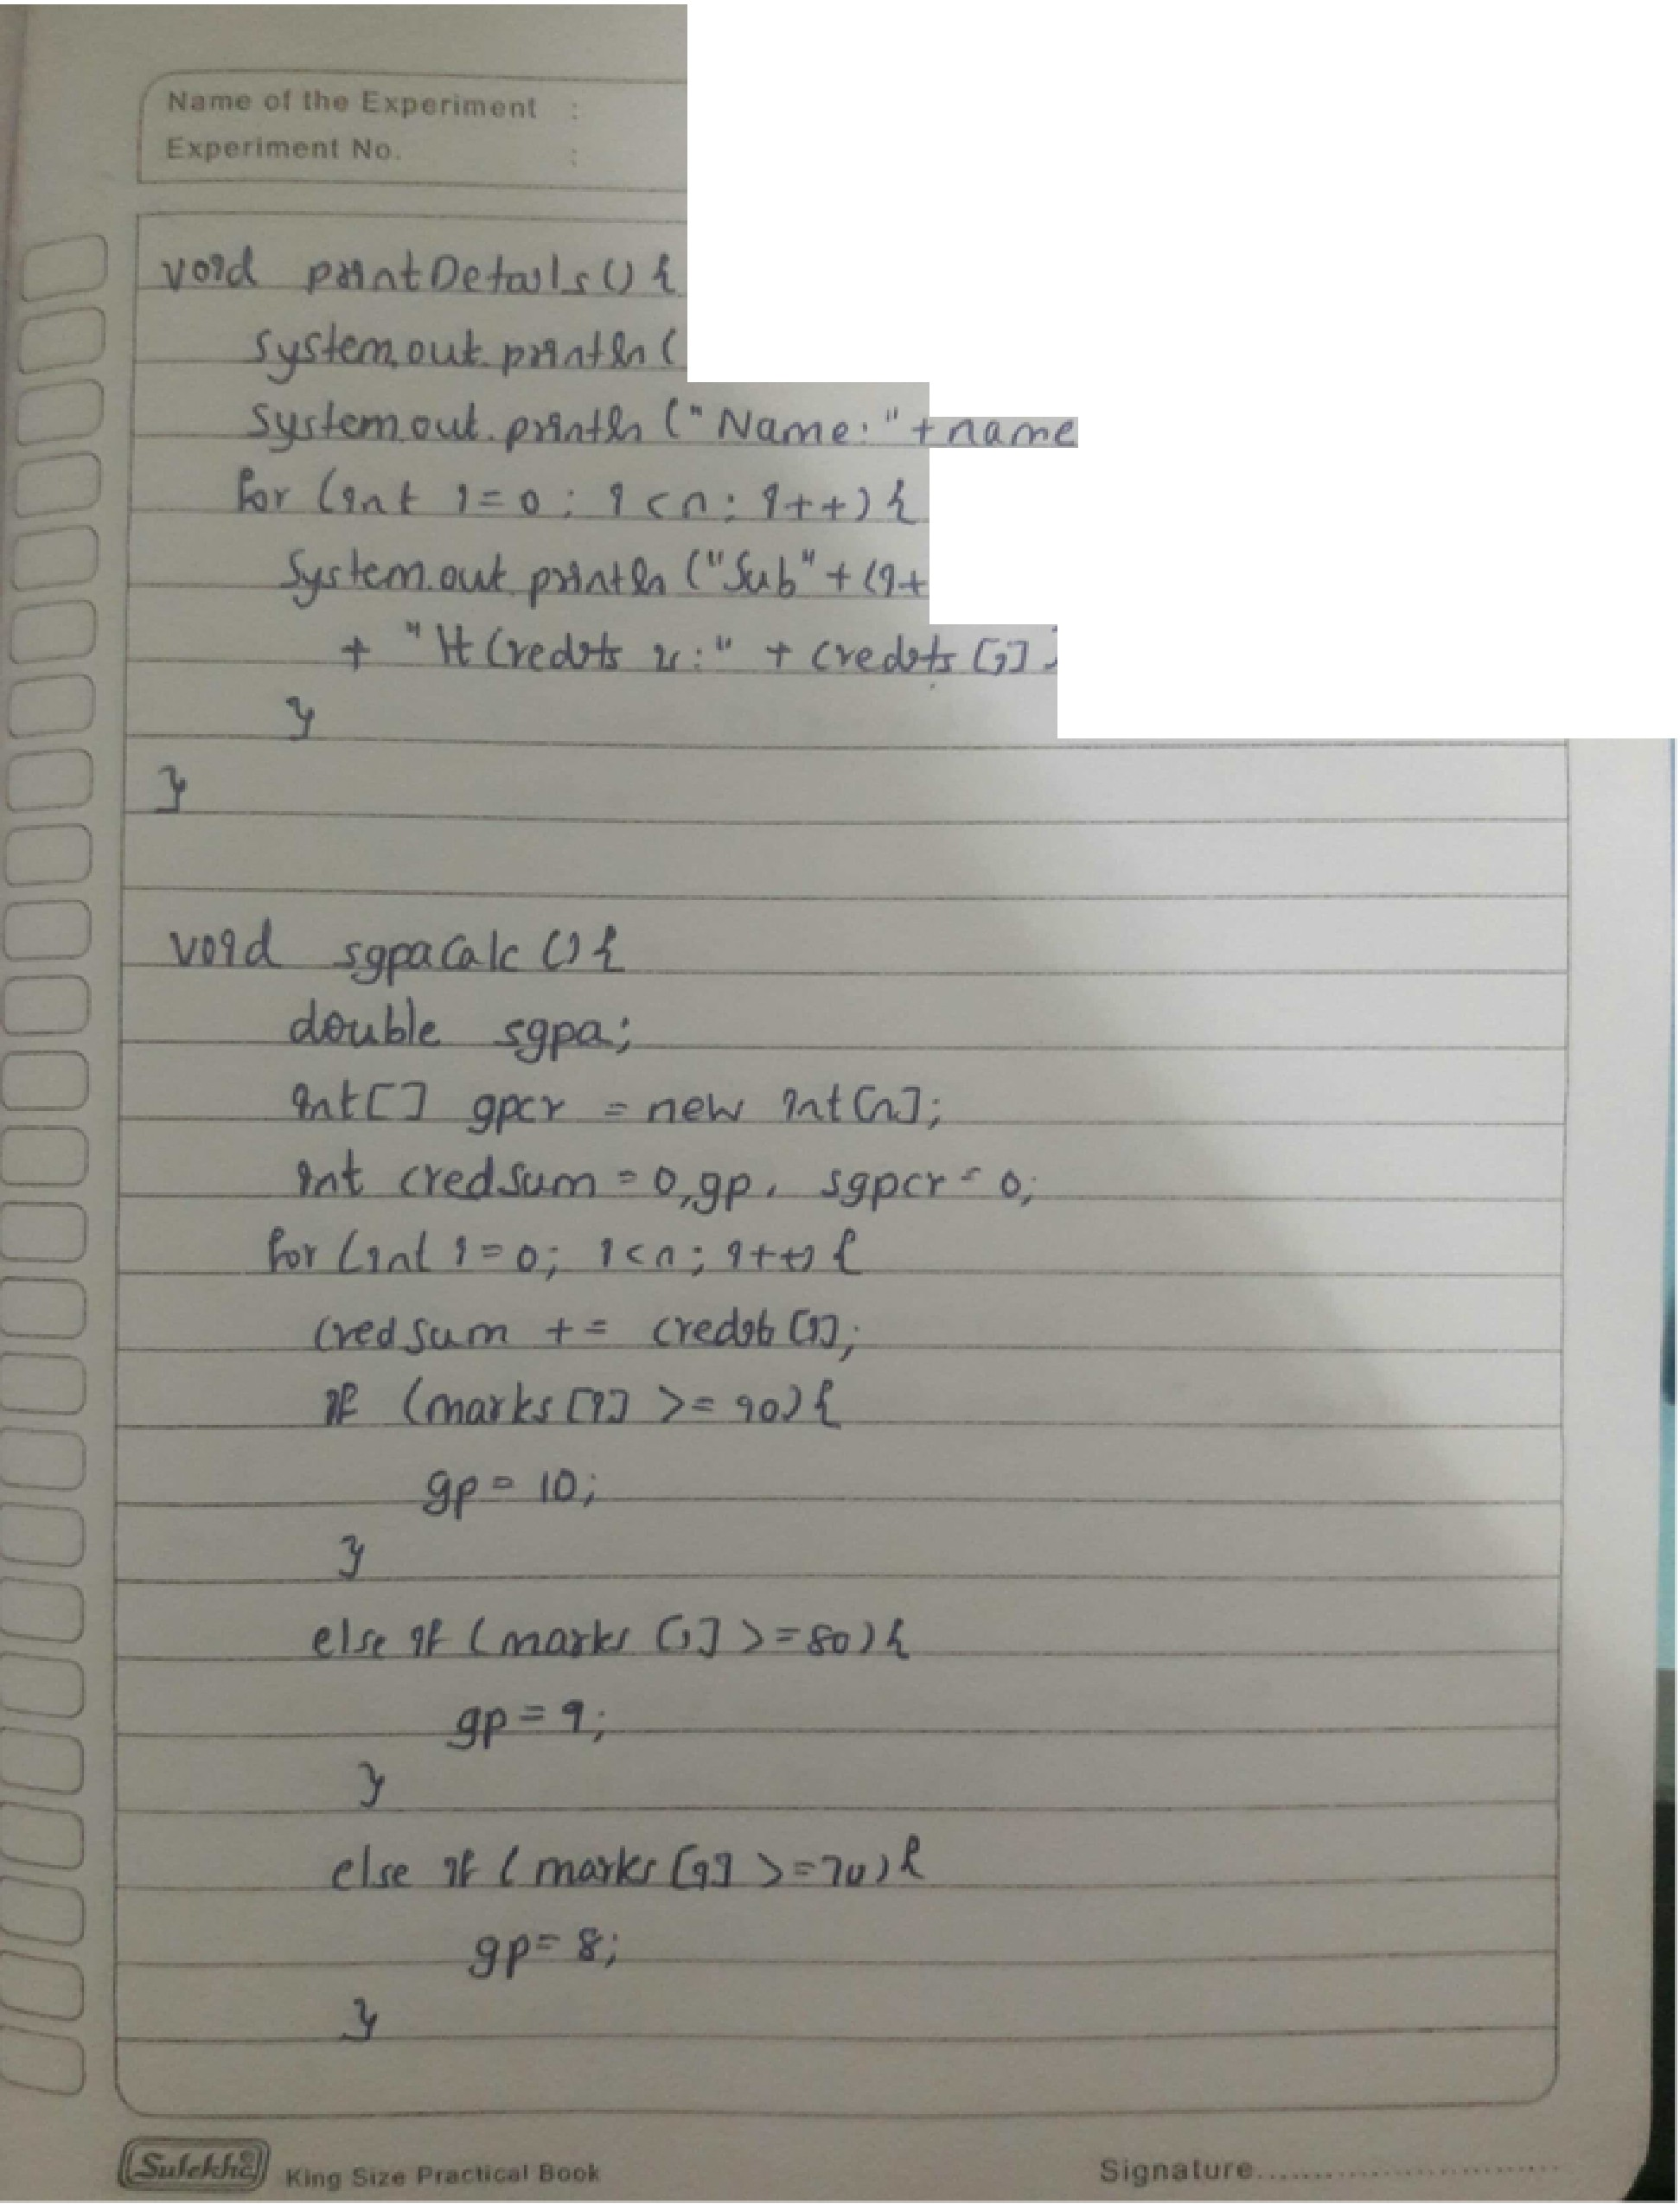 Name of the Experiment :
Experiment No. :
void printDetails() {
System.out.println(
System.out.println("Name:"+name
for (int i=0; i<n; i++) {
System.out.println("Sub"+(i+
+ "\t Credits :" + credits[i]
}
}
void sgpaCalc () {
double sgpa;
int[] gpcr = new int[n];
int credSum = 0, gp, sgpcr = 0;
for (int i=0; i<n; i++) {
credSum += credits[i];
if (marks[i] >= 90) {
gp = 10;
}
else if (marks[i] >= 80) {
gp = 9;
}
else if (marks[i] >= 70) {
gp = 8;
}
Sulekha King Size Practical Book
Signature